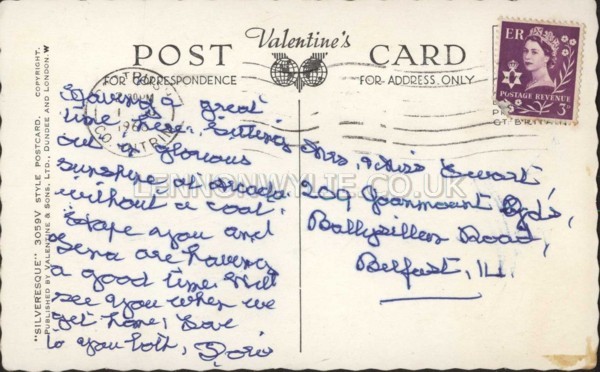 Valentine's
POST CARD
FOR CORRESPONDENCE
FOR ADDRESS ONLY
Having a great
time here. Sitting
out in glorious
sunshine at arcadia
without a coat.
Hope you and
Lena are having
a good time. Will
see you when we
get home, Love
to you both, Doris
Mrs. & Miss Ewart
209 Joanmount Gds,
Ballysillen Road,
Belfast, 14.
E R
POSTAGE REVENUE
3D
CO. ANTRIM
GT. BRITAIN
LENNONWYLIE.CO.UK
"SILVERESQUE" 3059V STYLE POSTCARD. COPYRIGHT.
PUBLISHED BY VALENTINE & SONS, LTD., DUNDEE AND LONDON. W